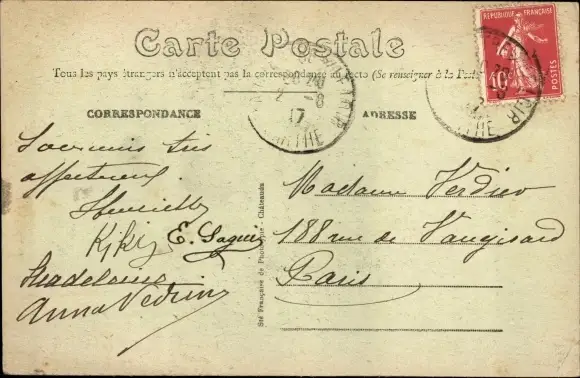 Carte Postale
Tous les pays étrangers n'acceptent pas la correspondance au recto (Se renseigner à la Poste)
CORRESPONDANCE
ADRESSE
REPUBLIQUE FRANÇAISE
POSTES
10
20-30
2-8
17
SARTHE
Souvenirs très
affectueux
Henriette
Kiki
E. Saguin
Madeleine
Anna Vedrin
Sté Française de Phototypie - Châteaudun
Madame Verdier
188 rue de Vaugirard
Paris